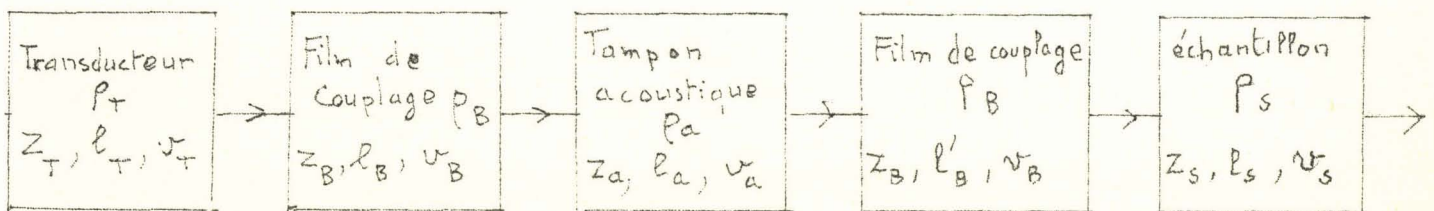 Transducteur
ρ_T
Z_T, ℓ_T, v_T
Film de
Couplage ρ_B
Z_B, ℓ_B, v_B
Tampon
acoustique
ρ_a
Z_a, ℓ_a, v_a
Film de couplage
ρ_B
Z_B, ℓ'_B, v_B
échantillon
ρ_S
Z_S, ℓ_S, v_S